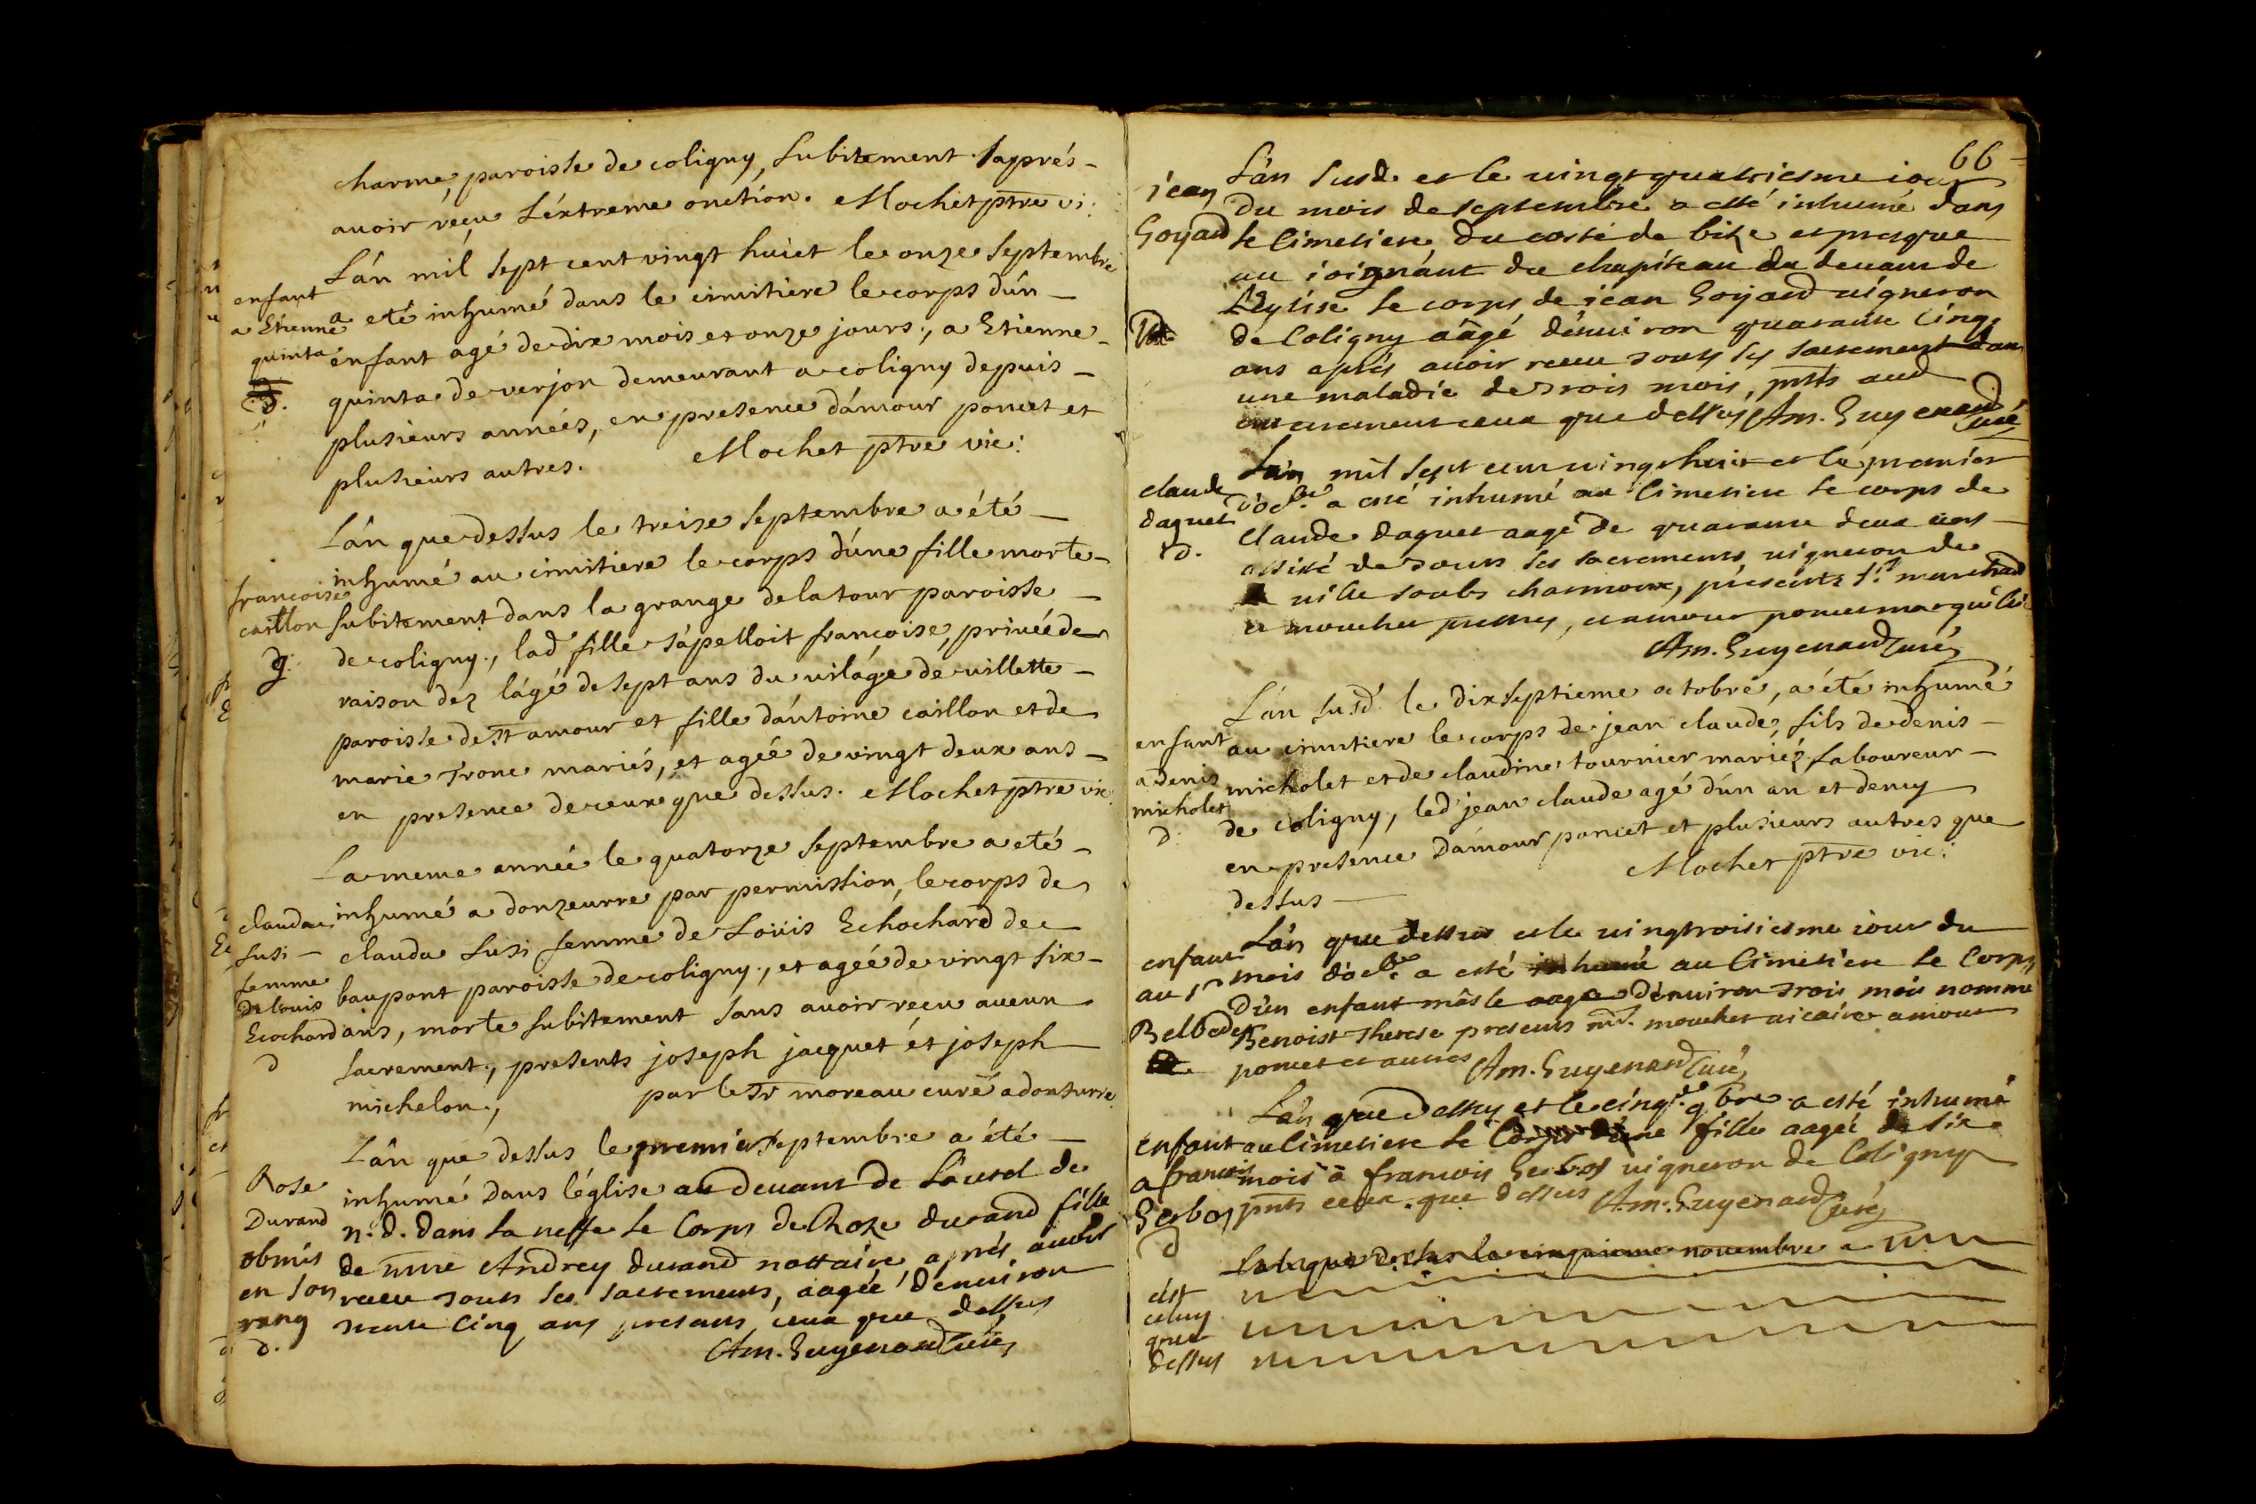 charme, paroisse de coligny, subitement aprés
avoir réçu l'éxtreme onction. Mochet ptre vi:
L'án mil sept cent vingt huict le onze septembre
enfant
a Etienne
quinta
d.
a eté inhumé dans le cimitiere le corps d'ún
énfant agé de dix mois et onze jours, a Etienne
quinta de verjon demeurant a coligny depuis
plusieurs années, en presence d'ámour poncet et
plusieurs autres. Mochet ptre vic:
L'án que dessus le treise septembre a été
francoise
caillon
d.
inhumé au cimitiere le corps d'úne fille morte
subitement dans la grange de la tour paroisse
de coligny, lad fille s'ápelloit françoise, privée de
raison dez l'ágé de sept ans du vilage de villette
paroisse de st amour et fille d'ántoine caillon et de
marie Trone mariés, et agée de vingt deux ans
en presence de ceux que dessus. Mochet ptre vic:
La meme année le quatorze septembre a eté
clauda
Susi
femme
de louis
Ecochard
d
inhumé a donzeurre par permission, le corps de
clauda Susi femme de Loüis Echochard de
baupont paroisse de coligny, et agée de vingt six
ans, morte subitement sans avoir reçu aucun
sacrement, presents joseph jacquet et joseph
michelon, par le Sr moreau curé a donsurre
L'án que dessus le premier septembre a été
Rose
Durand
obmis
en son
rang
d.
inhumé dans l'église au devant de L'autel de
n. d. dans la neffe le Corps de Roze durand fille
de mre Andrey durand nottaire aprés avoir
receu touts les sacrements, aagée d'environ
trente cinq ans presents ceux que dessus
Am. Guyenard curé
66
L'án susd. et le vingt quatriesme iour
jean
Goyard
du mois de septembre a esté inhumé dans
le Cimetiere du costé de bize et presque
au joignánt du chapiteau du devant de
L'Eglise le corps de jean Goyard vigneron
de Coligny aâgé d'environ quarante Cinq
ans aprés avoir receu touts les sacrement dans
une maladie de trois mois, pnts aud
enterrement ceux que dessus Am. Guyenard curé
L'án mil sept cent vingt huit et le premier
claude
daguet
d.
d'8bre a esté inhumé au Cimetiere le corps de
Claude daguet aagé de quarante deux ans
assisté de touts les sacrements vigneron de
ville soubs charmoux, presents Sr marchand
et mouchet prestres, et amour poncet marguillier
Am. Guyenard curé
L'án susd. le dix septieme octobre, a été inhumé
enfant
a denis
micholet
d.
au cimitiere le corps de jean claude, fils de denis
micholet et de claudine tournier mariéz laboureur
de coligny, led jean claude agé d'ún an et demy
en presence d'ámour poncet et plusieurs autres que
dessus Mochet ptre vic:
L'án que dessus et le vingtroisiesme iour du
enfant
au Sr
Belbeder
mois d'8bre a esté inhumé au Cimetiere le Corps
d'ún enfant mâsle aagé d'environ trois mois nommé
Benoist Therese presents mre mouchet vicaire amour
poncet et autres Am. Guyenard curé
L'án que dessus et le cinq 9bre a esté inhumé
enfant
a francois
Gerbos
d
au Cimetiere le Corps d'une fille aagée de six
mois à francois Gerbos vigneron de Coligny
pnts ceux que dessus Am. Guyenard curé
L'an que dessus le cinquieme novembre a
c'est
celuy
que
dessus